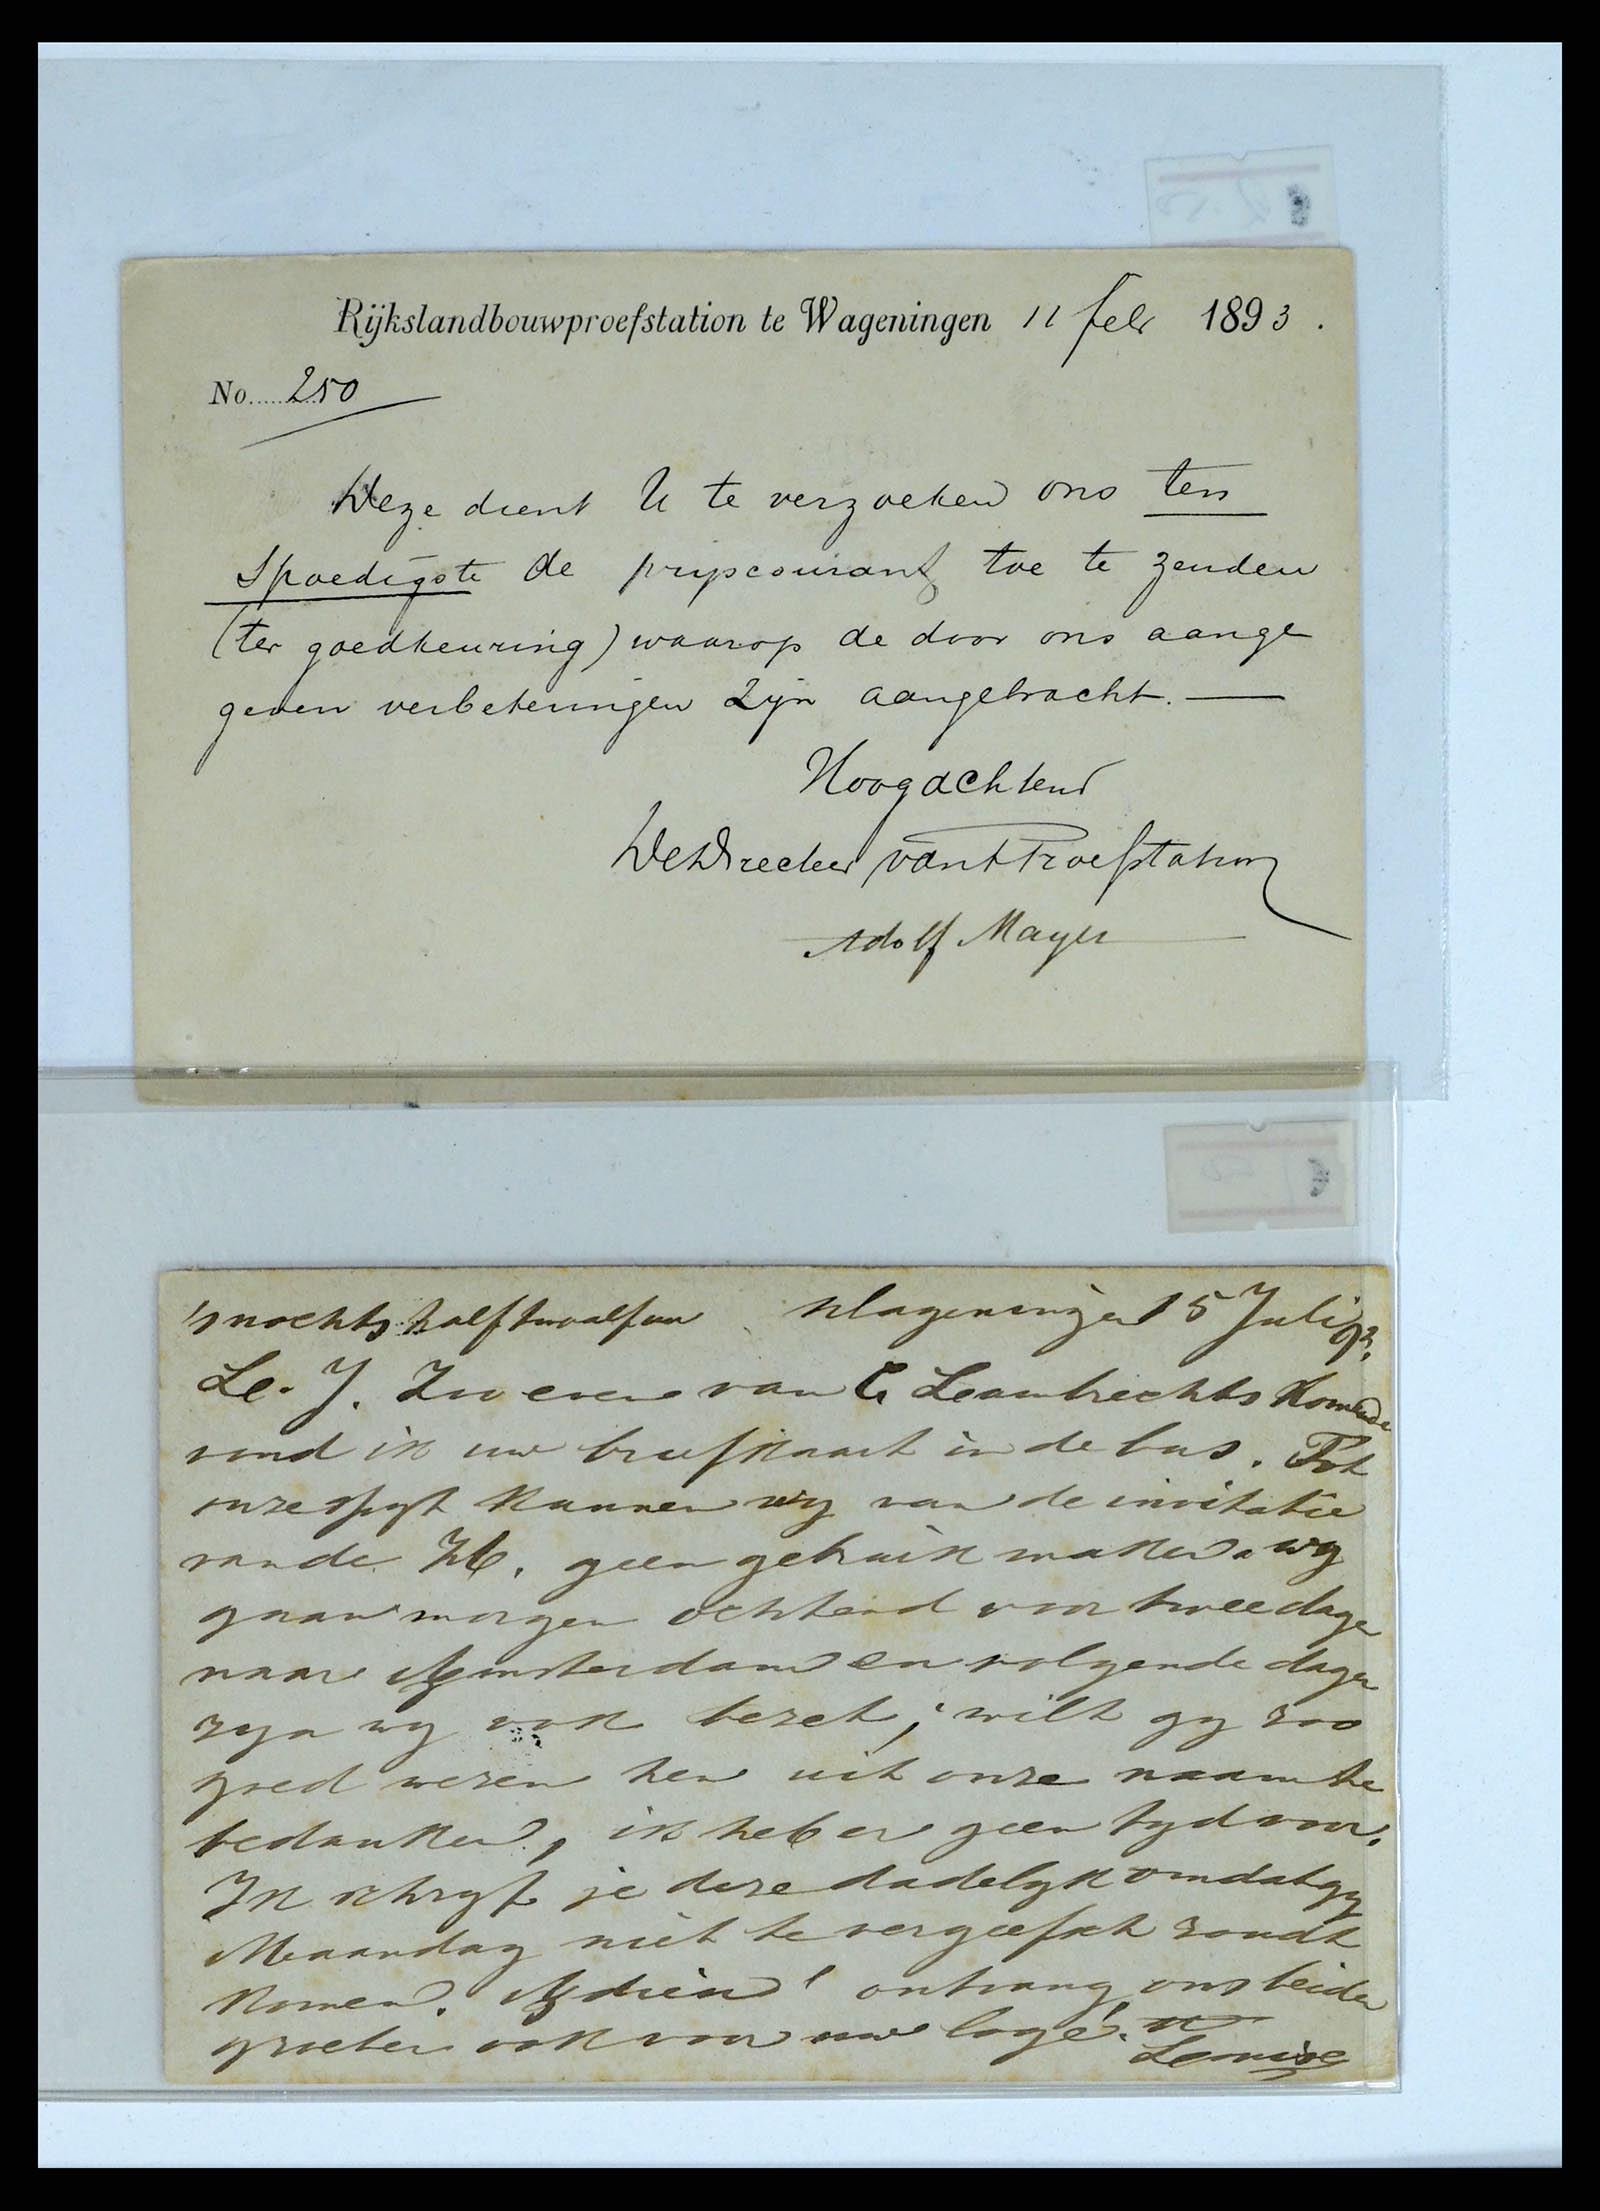 Rijkslandbouwproefstation te Wageningen 11 febr 1893.
No. 250
Deze dient U te verzoeken ons ten
spoedigste de prijscourant toe te zenden
(ter goedkeuring) waarop de door ons aange
geven verbeteringen zijn aangebracht. —
Hoogachtend
De Directeur van t Proefstation
Adolf Mayer
's nachts half twaalf uur Wageningen 15 Juli 93.
Le. J. Zoo even van C. Lambrechts komende
vond ik uw briefkaart in de bus. Tot
onze spyt kunnen wy van de invitatie
van de geen gebruik maken. wy
gaan morgen ochtend voor twee dagen
naar Amsterdam en volgende dagen
zyn wy ook bezet; wilt gy zoo
goed wezen hen uit onze naam te
bedanken, ik heb er geen tyd voor.
Ik schryf je deze dadelyk omdat gy
Maandag niet te vergeefsch zoudt
komen. Adieu! ontvang ons beider
groeten ook voor uw logé. tt
Louise